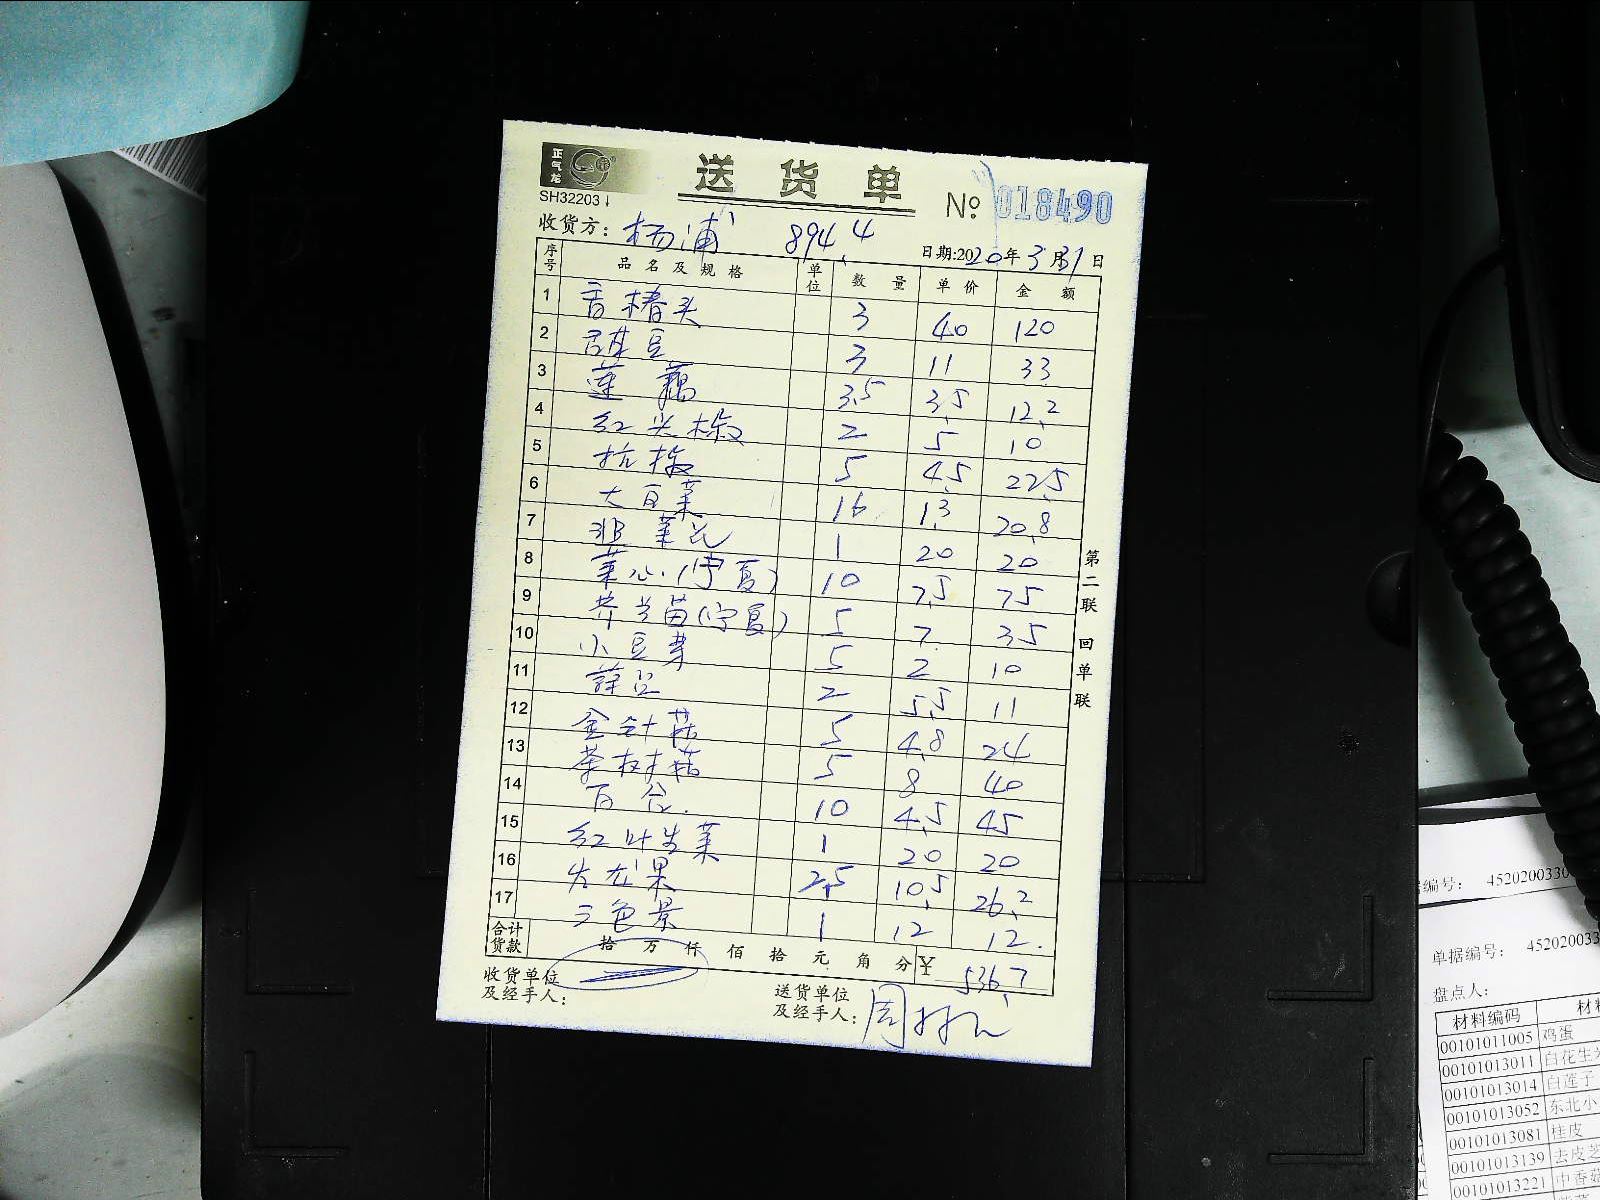 正气龙
送货单
SH32203
№ 018490
收货方: 杨浦 894.4
日期:2020年3月31日
序号 品名及规格 单位 数量 单价 金额
1 香椿头 3 40 120
2 甜蜜豆 3 11 33
3 莲藕 3.5 3.5 12.2
4 红头椒 2 5 10
5 杭椒 5 4.5 22.5
6 大白菜 16 1.3 20.8
7 韭菜花 1 20 20
8 菜心(宁夏) 10 7.5 75
9 芥兰苗(宁夏) 5 7 35
10 小豆芽 5 2 10
11 2 5.5 11
12 金针菇 5 4.8 24
13 茶树菇 5 8 40
14 百合 10 4.5 45
15 红叶生菜 1 20 20
16 火龙果 2.5 10.5 26.2
17 三色景 1 12 12.
合计货款 拾 万 仟 佰 拾 元 角 分 ¥ 536.7
收货单位及经手人:
送货单位及经手人: 周
第二联 回单联
编号: 4520200330
单据编号: 452020033
盘点人:
材料编码 材料
00101011005 鸡蛋
00101013011 白花生米
00101013014 白莲子
00101013052 东北小
00101013081 桂皮
00101013139 去皮芝
00101013221 中香菇